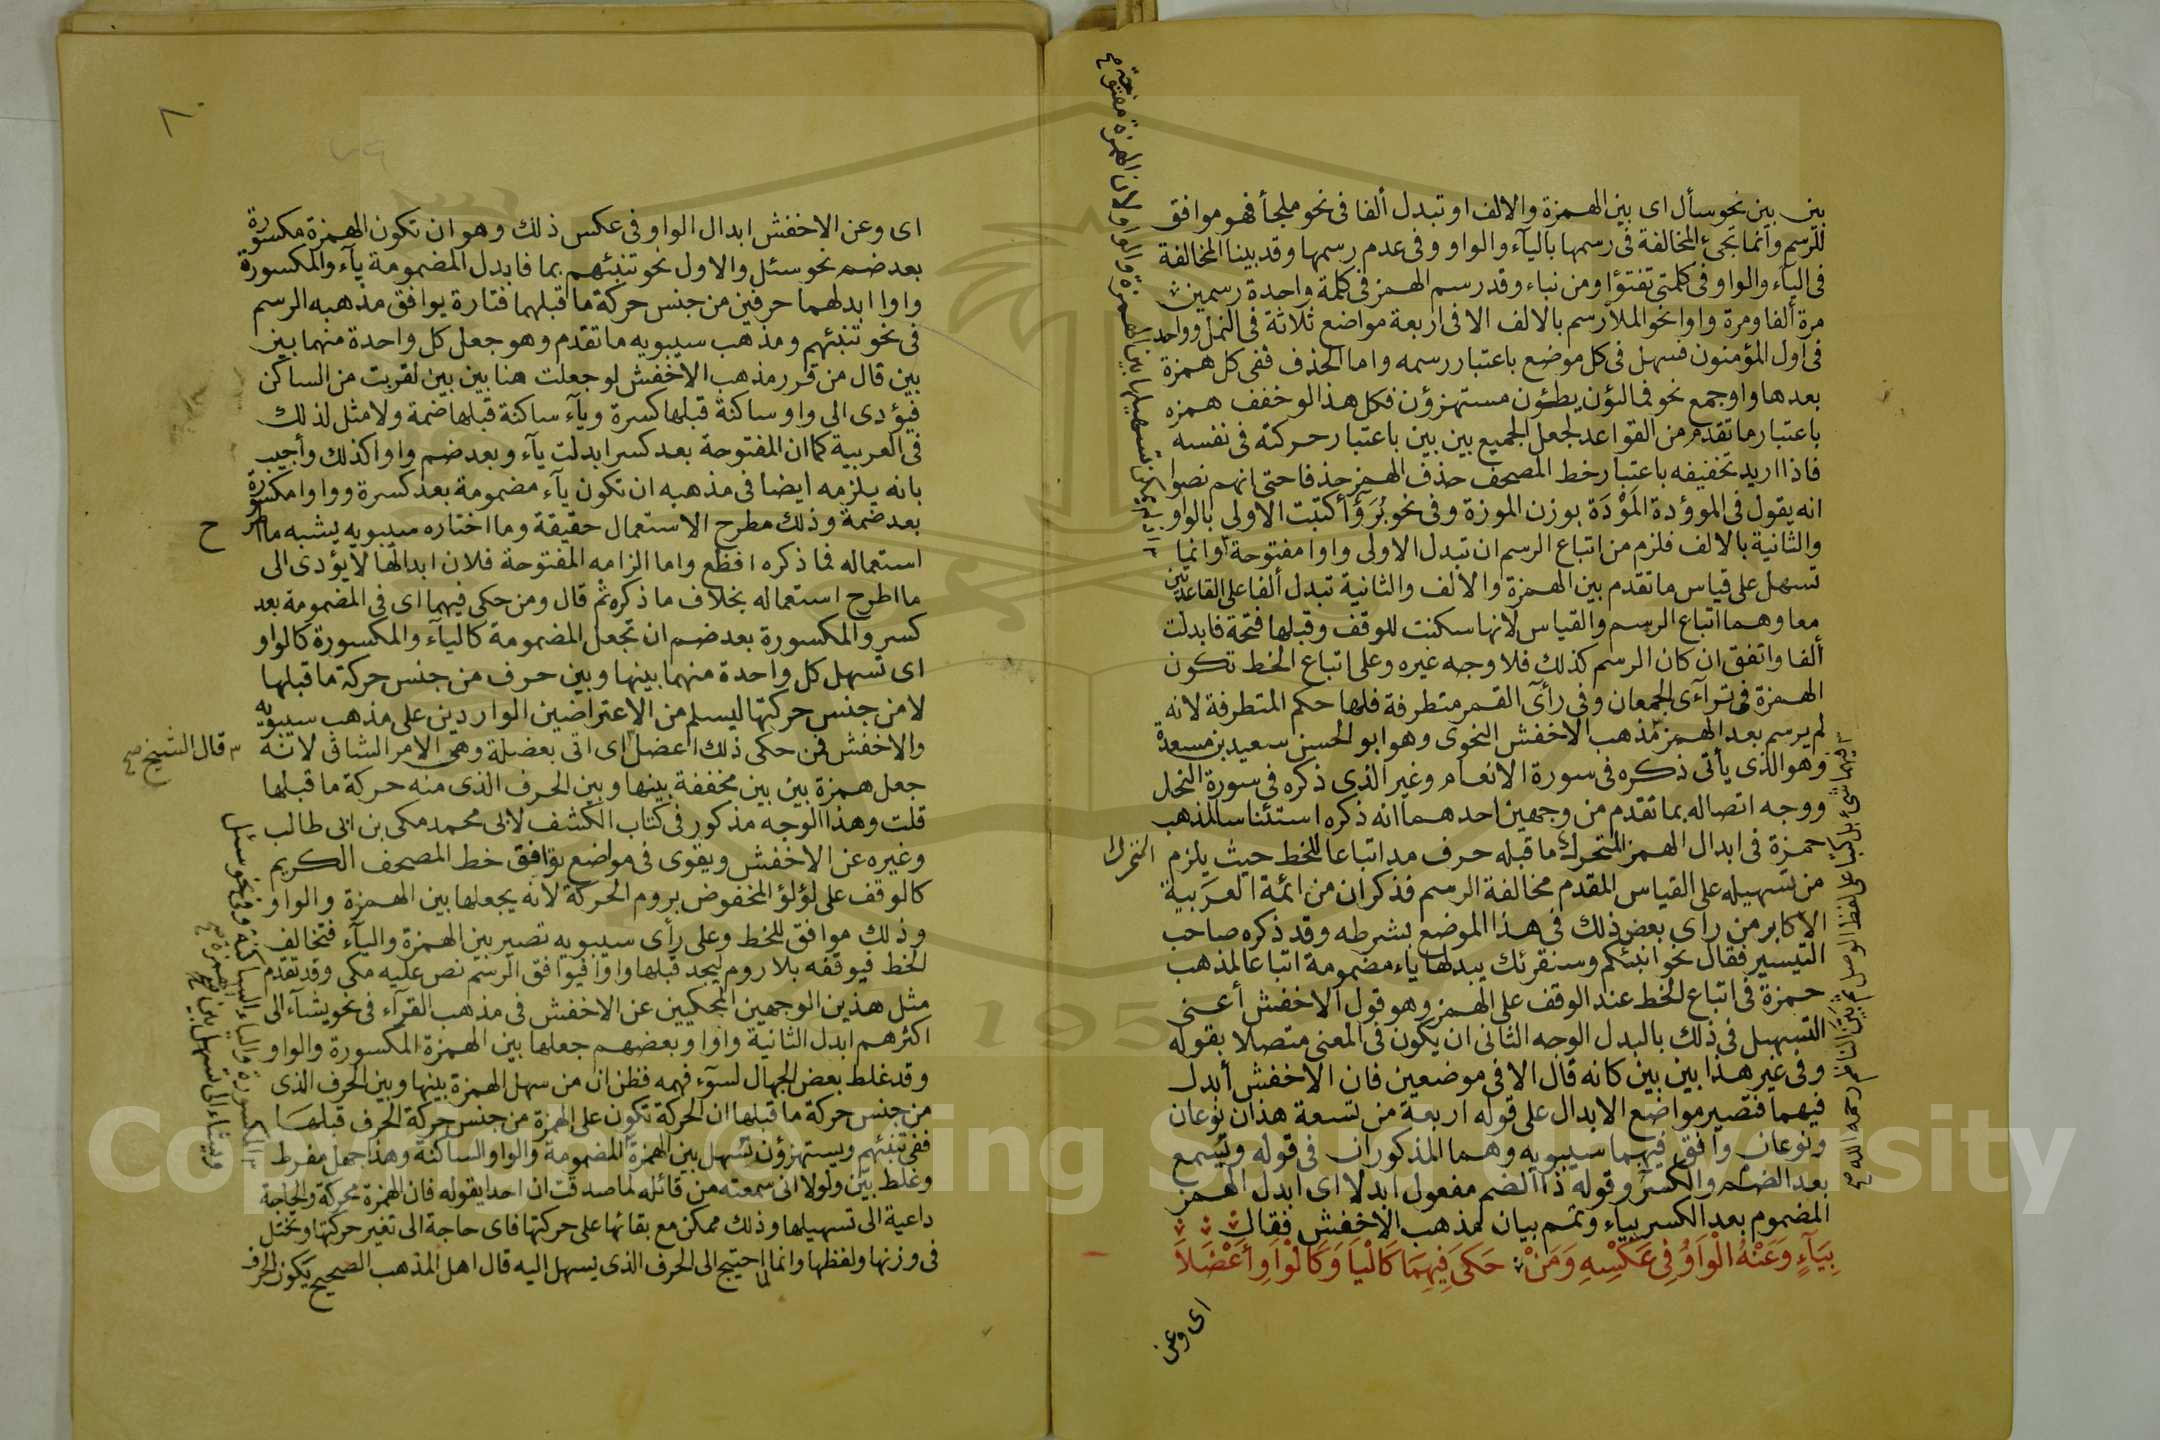 بين بين نحو سأل اى بين الهمزة والالف او تبدل ألفا فى نحو ملجأ فهو موافق
للرسم وانما تجئ المخالفة فى رسمها بالياء والواو وفى عدم رسمها وقد بينا المخالفة
فى الياء والواو فى كلمتى تفتؤا ومن نباء وقد رسم الهمز فى كلمة واحدة رسمين
مرة ألفا ومرة واوا نحو الملأ رسم بالالف الا فى اربعة مواضع ثلاثة فى النمل وواحد
فى اول المؤمنون فسهل فى كل موضع باعتبار رسمه واما الحذف ففى كل همزة
بعدها واو جمع نحو فمالؤن يطئون مستهزؤن فكل هذا لو خفف همزه
باعتبار ما تقدم من القواعد لجعل الجميع بين بين باعتبار حركته فى نفسه
فاذا اريد تخفيفه باعتبار خط المصحف حذف الهمز حذفا حتى انهم نصوا
انه يقول فى الموؤدة المَوْدَة بوزن الموزة وفى نحو بُرَؤُا كتبت الاولى بالواو
والثانية بالالف فلزم من اتباع الرسم ان تبدل الاولى واوا مفتوحة وانما
تسهل على قياس ما تقدم بين الهمزة والالف والثانية تبدل ألفا على القاعدتين
معا وهما اتباع الرسم والقياس لانها سكنت للوقف وقبلها فتحة فابدلت
ألفا واتفق ان كان الرسم كذلك فلا وجه غيره وعلى اتباع الخط تكون
الهمزة فى تراءى الجمعان وفى رأى القمر متطرفة فلها حكم المتطرفة لانه
لم يرسم بعد الهمز مذهب الاخفش النحوى وهو ابو الحسن سعيد بن مسعدة
وهو الذى يأتى ذكره فى سورة الانعام وغير الذى ذكره فى سورة النحل
ووجه اتصاله بما تقدم من وجهين احدهما انه ذكره استئناسا لمذهب
حمزة فى ابدال الهمز المتحرك ما قبله حرف مد اتباعا للخط حيث يلزم
من تسهيله على القياس المقدم مخالفة الرسم فذكر ان من ائمة العربية
الاكابر من راى بعض ذلك فى هذا الموضع بشرطه وقد ذكره صاحب
التيسير فقال نحو انبئكم وسنقرئك يبدلها ياء مضمومة اتباعا لمذهب
حمزة فى اتباع الخط عند الوقف على الهمز وهو قول الاخفش أعنى
التسهيل فى ذلك بالبدل الوجه الثانى ان يكون فى المعنى متصلا بقوله
وفى غير هذا بين بين كانه قال الا فى موضعين فان الاخفش أبدل
فيهما فتصير مواضع الابدال على قوله اربعة من تسعة هذان نوعان
ونوعان وافق فيهما سيبويه وهما المذكوران فى قوله وتسمع
بعد الضم والكسر وقوله ذا الضم مفعول ابدلا اى ابدل الهمز
المضموم بعد الكسر بياء وتم بيان مذهب الاخفش فقال
بِيَآءٍ وَعَنْهُ الْوَاوُ فِى عَكْسِهِ وَمَنْ حَكَى فِيهِمَا كَالْيَا وَكَالْوَاوِ أَعْضَلَا
اى وعن
المتحرك
اى وعن الاخفش ابدال الواو فى عكس ذلك وهو ان تكون الهمزة مكسورة
بعد ضم نحو سئل والاول نحو تنبئهم بما فابدل المضمومة ياء والمكسورة
واوا ابدلهما حرفين من جنس حركة ما قبلهما فتارة يوافق مذهبه الرسم
فى نحو تنبئهم ومذهب سيبويه ما تقدم وهو جعل كل واحدة منهما بين
بين قال من قرر مذهب الاخفش لو جعلت هنا بين بين لقربت من الساكن
فيؤدى الى واو ساكنة قبلها كسرة وياء ساكنة قبلها ضمة ولا مثل لذلك
فى العربية كما ان المفتوحة بعد كسر ابدلت ياء وبعد ضم واوا كذلك وأجيب
بانه يلزمه ايضا فى مذهبه ان تكون ياء مضمومة بعد كسرة وواوا مكسورة
بعد ضمة وذلك مطرح الاستعمال حقيقة وما اختاره سيبويه يشبه ما اطرح
استعماله فما ذكره افظع واما الزامه المفتوحة فلان ابدالها لا يؤدى الى
ما اطرح استعماله بخلاف ما ذكره ثم قال ومن حكى فيهما اى فى المضمومة بعد
كسر والمكسورة بعد ضم ان تجعل المضمومة كالياء والمكسورة كالواو
اى تسهل كل واحدة منهما بينها وبين حرف من جنس حركة ما قبلها
لا من جنس حركتها ليسلم من الاعتراضين الواردين على مذهب سيبويه
والاخفش فمن حكى ذلك اعضل اى اتى بعضلة وهى الامر الشاق لانه
جعل همزة بين بين مخففة بينها وبين الحرف الذى منه حركة ما قبلها
قلت وهذا الوجه مذكور فى كتاب الكشف لابى محمد مكى بن ابى طالب
وغيره عن الاخفش ويقوى فى مواضع توافق خط المصحف الكريم
كالوقف على لؤلؤ المخفوض بروم الحركة لانه يجعلها بين الهمزة والواو
وذلك موافق للخط وعلى رأى سيبويه تصير بين الهمزة والياء فتخالف
الخط فيوقفه بلا روم ليجد قبلها واوا فيوافق الرسم نص عليه مكى وقد تقدم
مثل هذين الوجهين المحكيين عن الاخفش فى مذهب القراء فى نحو يشاء الى
اكثرهم ابدل الثانية واوا وبعضهم جعلها بين الهمزة المكسورة والواو
وقد غلط بعض الجهال لسوء فهمه فظن ان من سهل الهمزة بينها وبين الحرف الذى
من جنس حركة ما قبلها ان الحركة تكون على الهمزة من جنس حركة الحرف قبلها
ففى تنبئهم ويستهزؤن تسهل بين الهمزة المضمومة والواو الساكنة وهذا جهل مفرط
وغلط بين ولولا انى سمعته من قائله لما صدقت ان احدا يقوله فان الهمزة محركة والحاجة
داعية الى تسهيلها وذلك ممكن مع بقائها على حركتها فاى حاجة الى تغير حركتها وتختل
فى وزنها ولفظها وانما احتيج الى الحرف الذى يسهل اليه قال اهل المذهب الصحيح يكون الحرف
قال الشيخ
ح
٨٠
Copyright © King Saud University
195